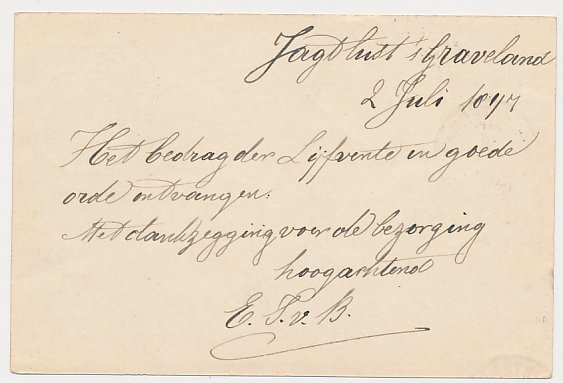 Jagtlust 's Graveland
2 Juli 1897
Het bedrag der Lijfrente in goede
orde ontvangen.
Met dankzegging voor de bezorging
hoogachtend
E. T. v. B.